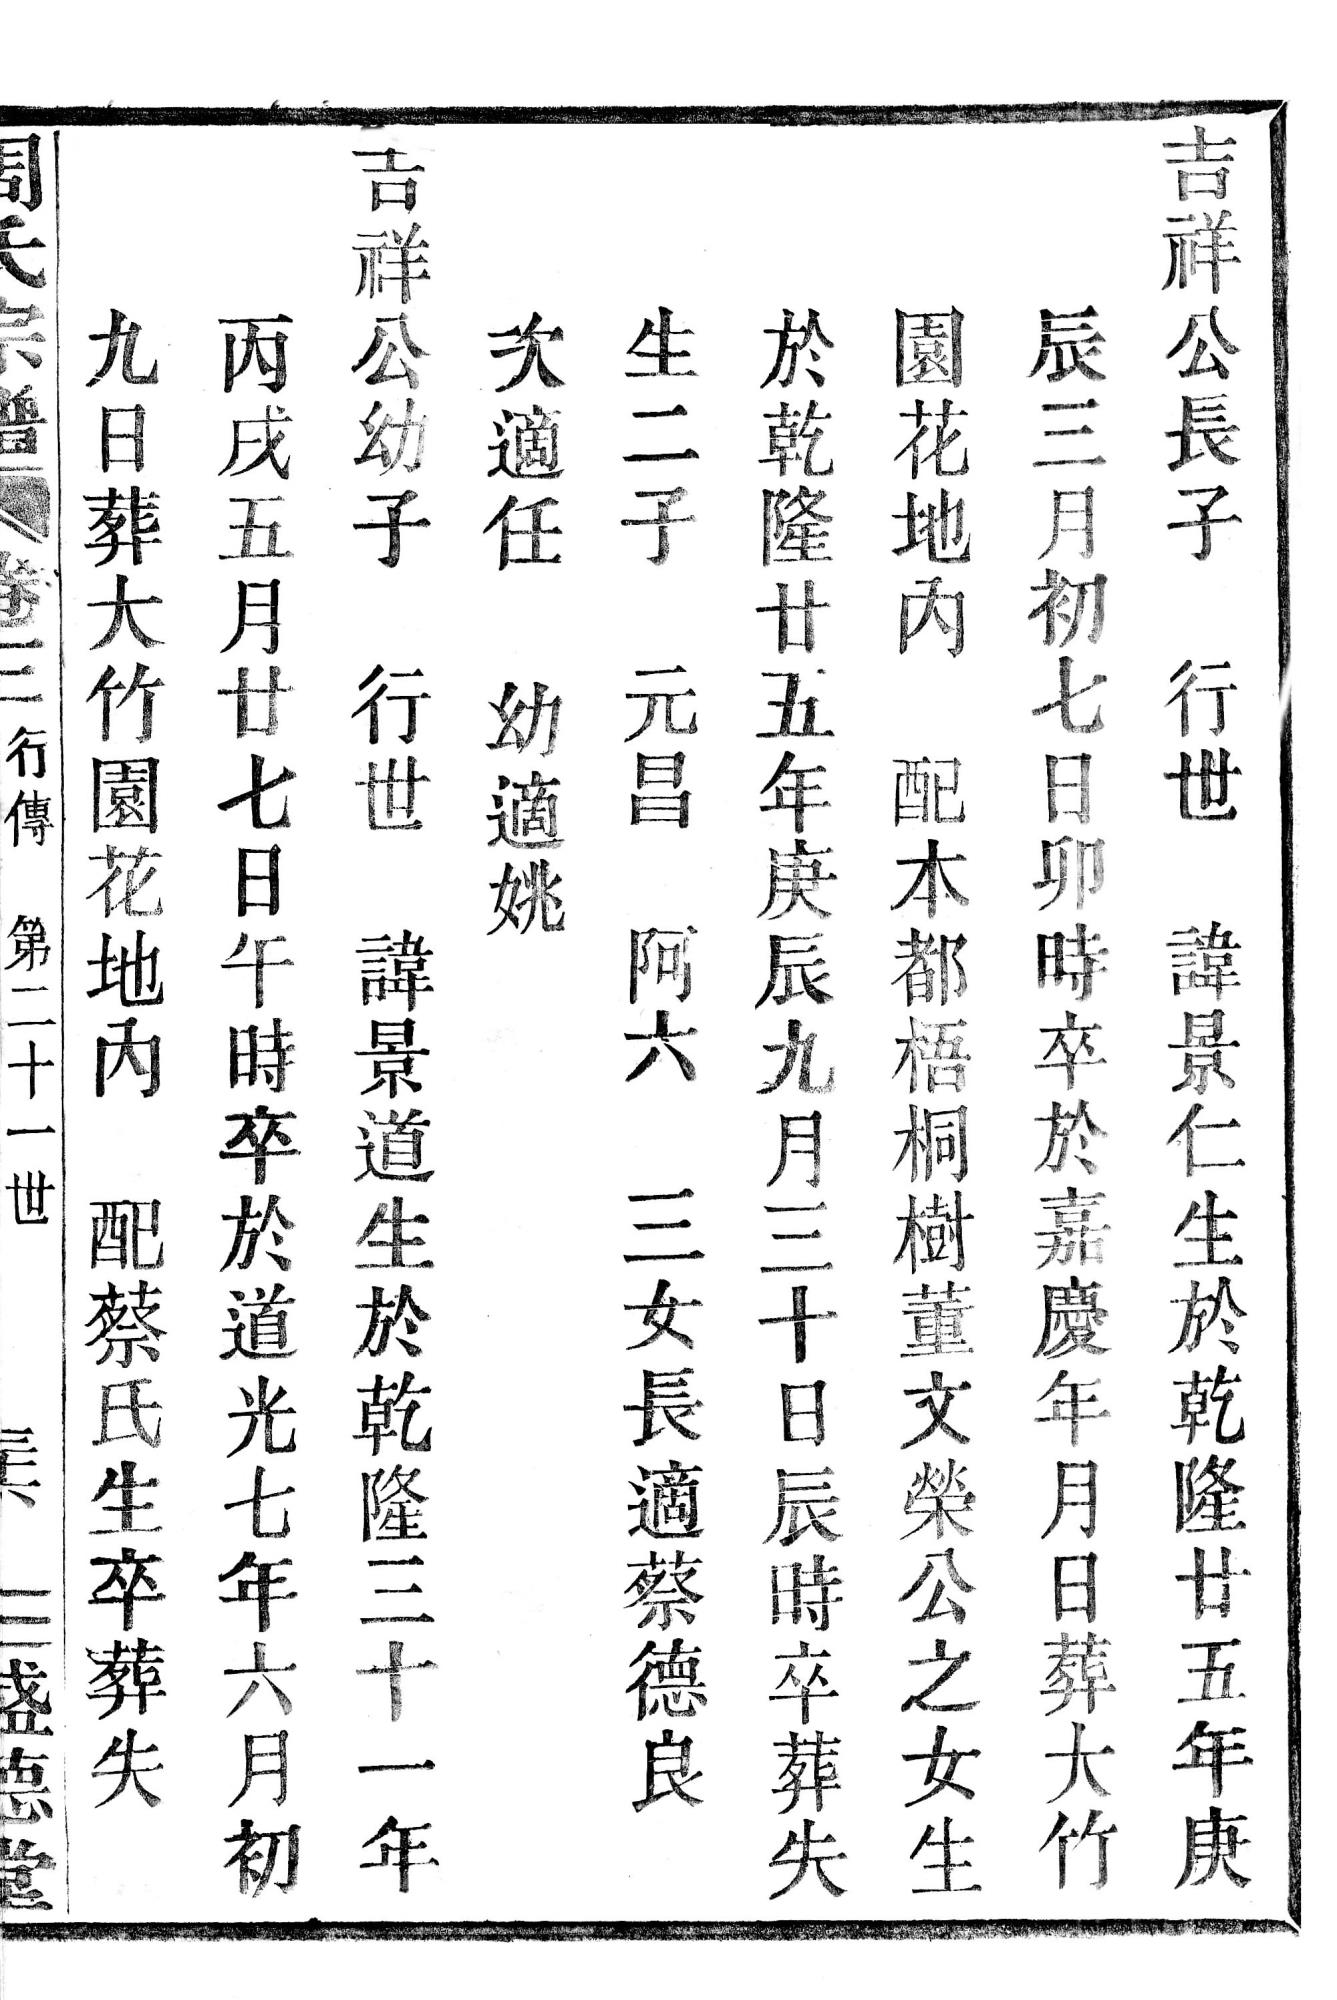 吉祥公長子　行世　諱景仁生於乾隆廿五年庚
辰三月初七日卯時卒於嘉慶年月日葬大竹
園花地內　配本都梧桐樹董文榮公之女生
於乾隆廿五年庚辰九月三十日辰時卒葬失
生二子　元昌　阿六　三女長適蔡德良
次適任　幼適姚
吉祥公幼子　行世　諱景道生於乾隆三十一年
丙戌五月廿七日午時卒於道光七年六月初
九日葬大竹園花地內　配蔡氏生卒葬失
周氏宗譜　卷三　行傳　第二十一世　三盛德堂